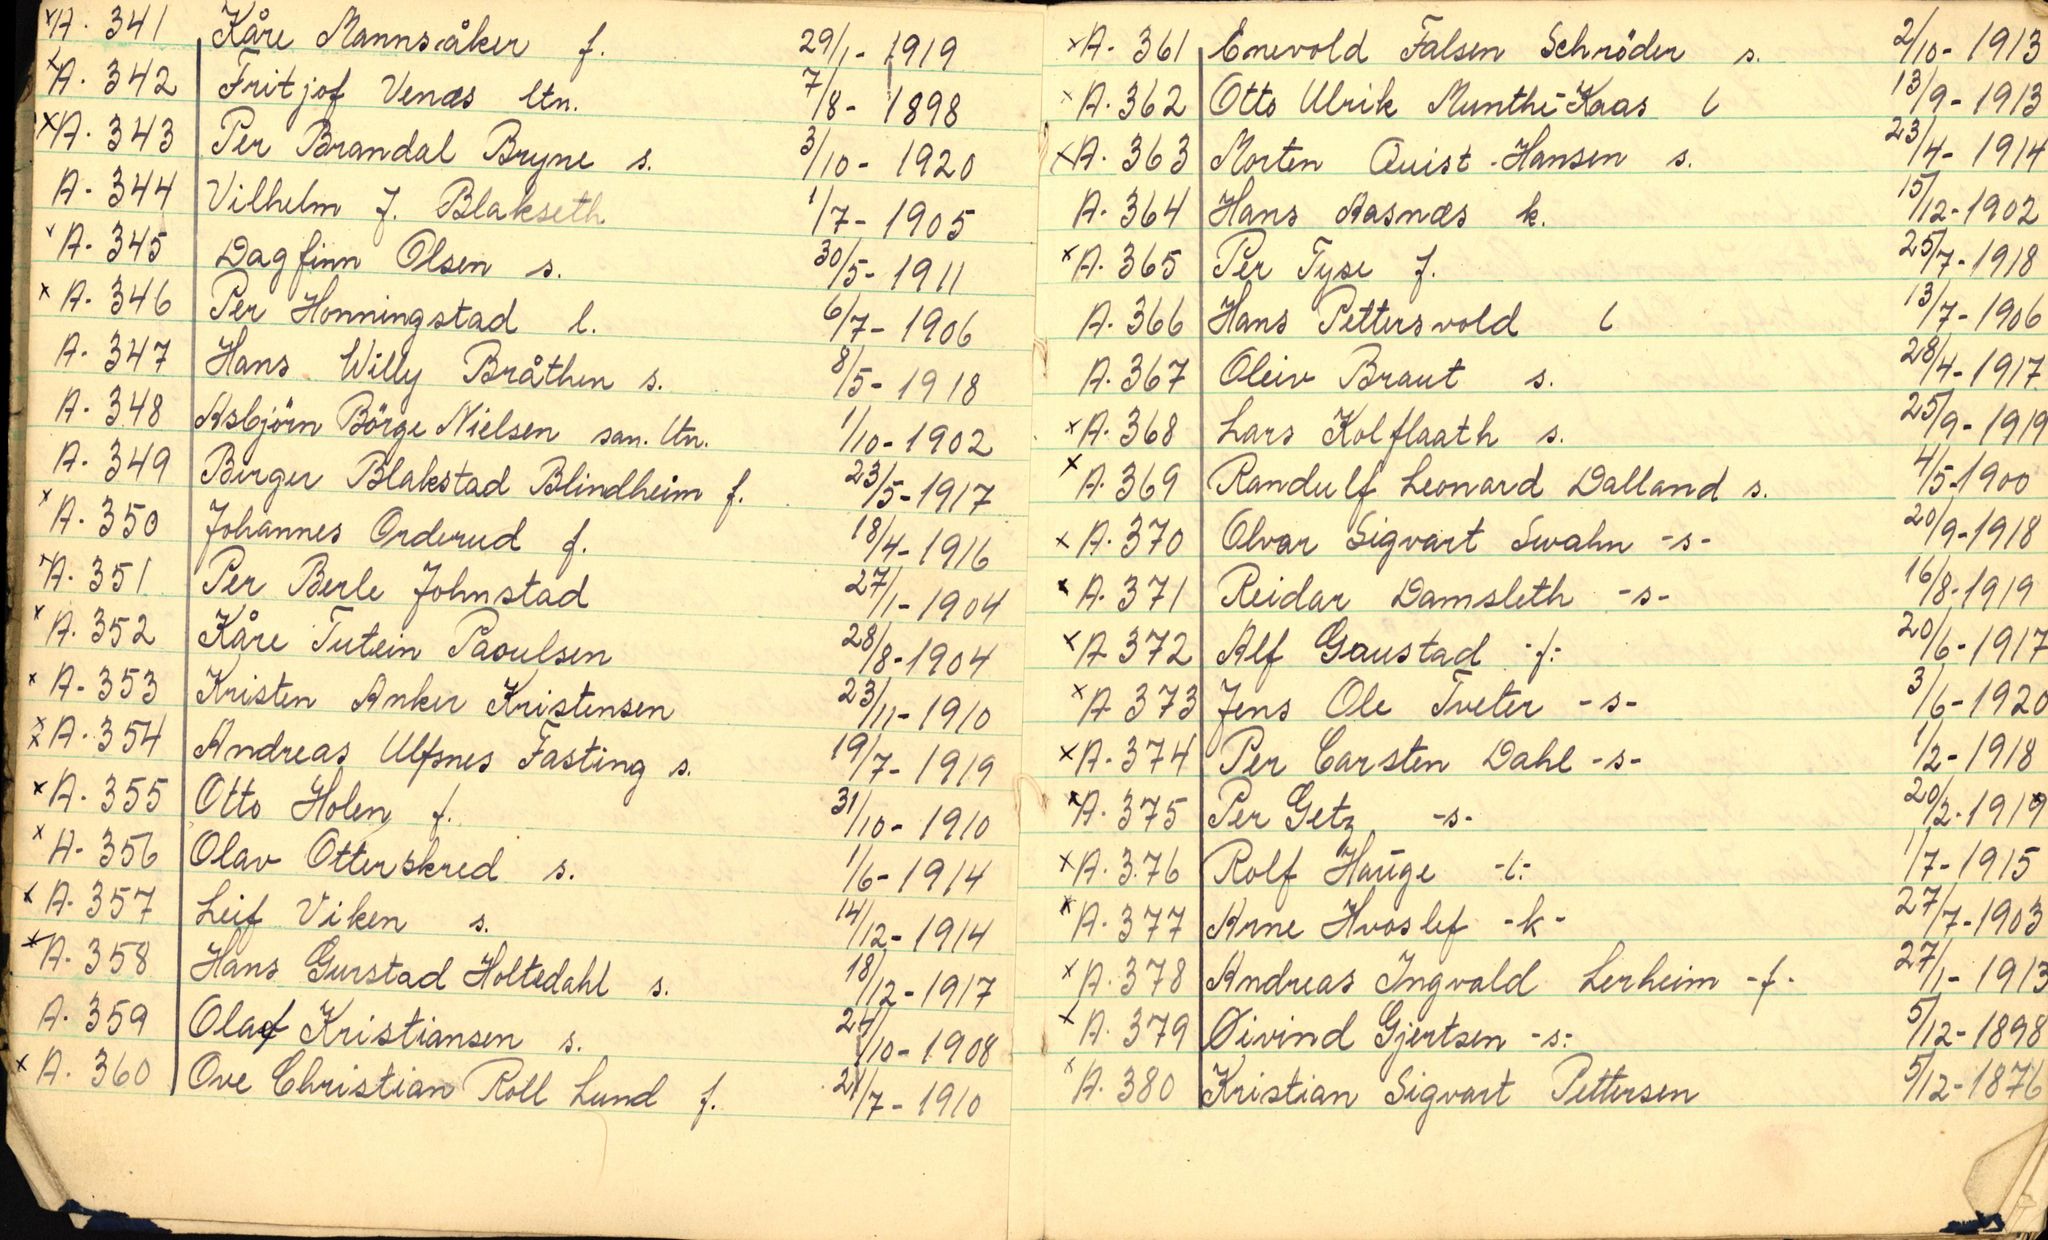 x A. 341 Kåre Mannsåker f. 29/1 - 1919
x A. 342 Fritjof Venæs ltn. 7/8 - 1898
x A. 343 Per Brandal Bryne s. 3/10 - 1920
A. 344 Vilhelm J. Blakseth 1/7 - 1905
x A. 345 Dagfinn Olsen s. 30/5 - 1911
x A. 346 Per Honningstad l. 6/7 - 1906
A. 347 Hans Willy Bråthen s. 8/5 - 1918
A. 348 Asbjörn Börge Nielsen san. ltn. 1/10 - 1902
A. 349 Birger Blakstad Blindheim f. 23/5 - 1917
x A. 350 Johannes Orderud f. 18/4 - 1916
x A. 351 Per Berle Johnstad 27/1 - 1904
x A. 352 Kåre Tutein Paoulsen 28/8 - 1904
x A. 353 Kristen Anker Kristensen 23/11 - 1910
x x A. 354 Andreas Ulfsnes Fasting s. 19/7 - 1919
x A. 355 Otto Holen f. 31/10 - 1910
x A. 356 Olav Otterskred s. 1/6 - 1914
x A. 357 Leif Viken s. 14/12 - 1914
x A. 358 Hans Gurstad Holtedahl s. 18/12 - 1917
A. 359 Olaf Kristiansen s. /10 - 1908
x A. 360 Ove Christian Roll Lund f. 21/7 - 1910
x A. 361 Enevold Falsen Schröder s. 2/10 - 1913
x A. 362 Otto Ulrik Munthe-Kaas l 13/9 - 1913
x A. 363 Morten Quist-Hansen s. 23/4 - 1914
A. 364 Hans Aasnæs k. 15/12 - 1902
x A. 365 Per Tyse f. 25/7 - 1918
A. 366 Hans Pettersvold l 13/7 - 1906
A. 367 Oleiv Braut s. 28/4 - 1917
x A. 368 Lars Kolflaath s. 25/9 - 1919
x A. 369 Randulf Leonard Dalland s. 4/5 - 1900
x A. 370 Olvar Sigvart Swahn -s- 20/9 - 1918
x A. 371 Reidar Damsleth -s- 16/8 - 1919
x A 372 Alf Gaustad -f- 20/6 - 1917
x A 373 Jens Ole Tveter -s- 3/6 - 1920
x A. 374 Per Carsten Dahl -s- 1/2 - 1918
x A. 375 Per Getz -s- 20/2 - 1919
x A. 376 Rolf Hauge -l- 1/7 - 1915
x A. 377 Arne Hvoslef -k- 27/7 - 1903
x A. 378 Andreas Ingvald Lerheim -f- 27/1 - 1913
x A. 379 Øivind Gjertsen -s- 5/12 - 1898
x A. 380 Kristian Sigvart Pettersen 5/12 - 1876